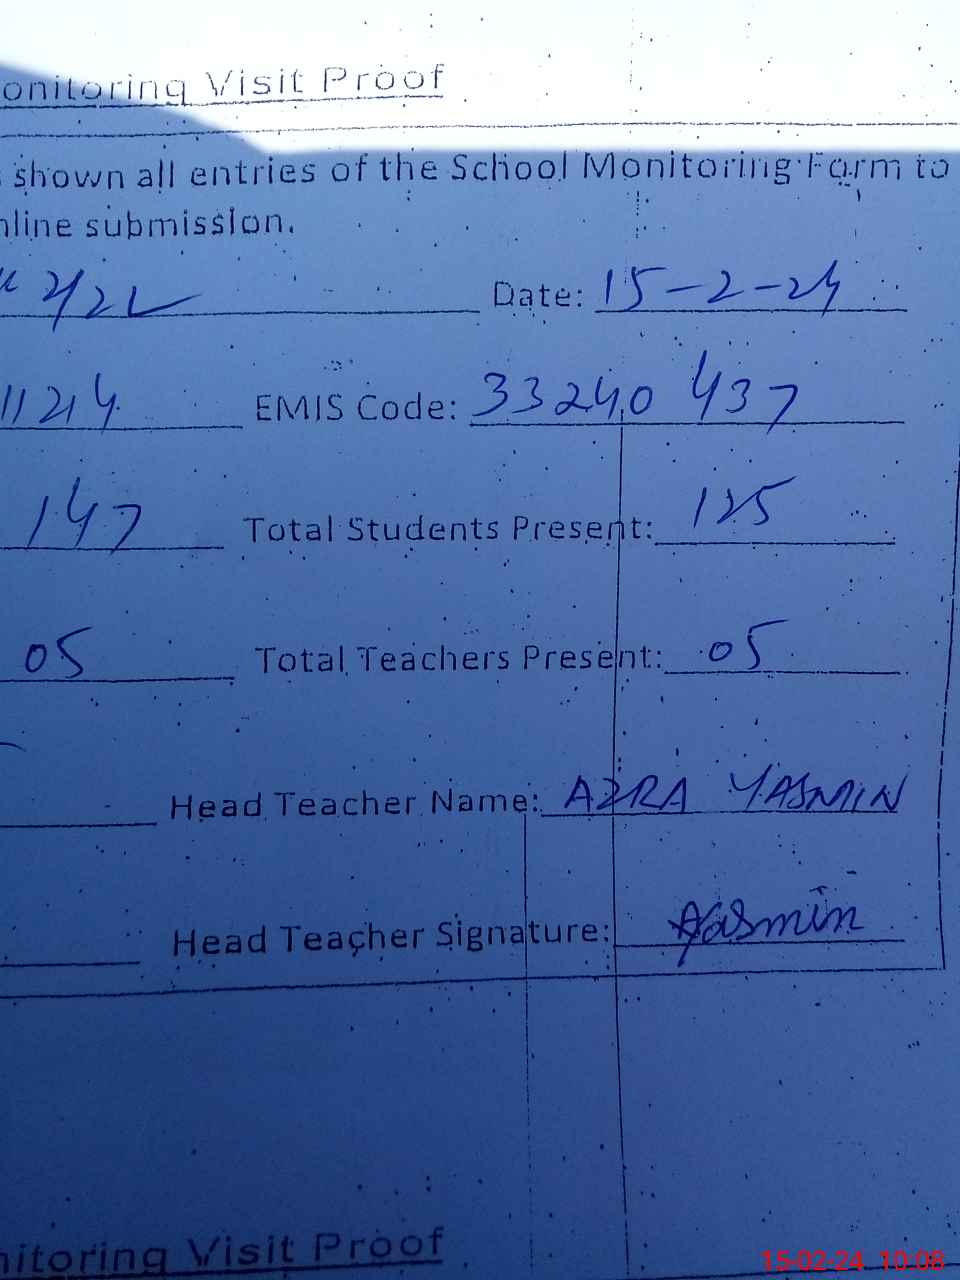 onitoring Visit Proof
shown all entries of the School Monitoring Form to
nline submission.
2/2L Date: 15-2-24
11214 EMIS Code: 33240 437
147 Total Students Present: 125
05 Total Teachers Present: 05
Head Teacher Name: AZRA YASMIN
Head Teacher Signature: Yasmin
nitoring Visit Proof
15-02-24 10:08